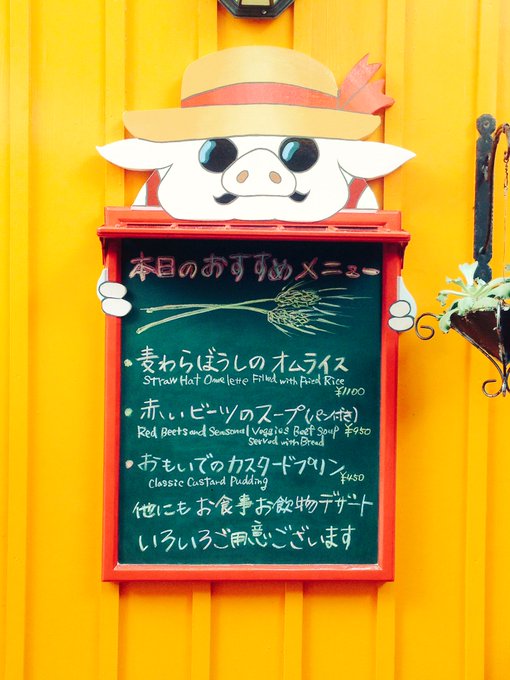 本日のおすすめメニュー
麦わらぼうしのオムライス
Straw Hat Omelette Filled with Fried Rice
¥1100
赤いビーツのスープ(パン付き)
Red Beets and Seasonal Veggies Beet Soup ¥950
Served with Bread
おもいでのカスタードプリン
Classic Custard Pudding ¥450
他にもお食事お飲物デザート
いろいろご用意ございます